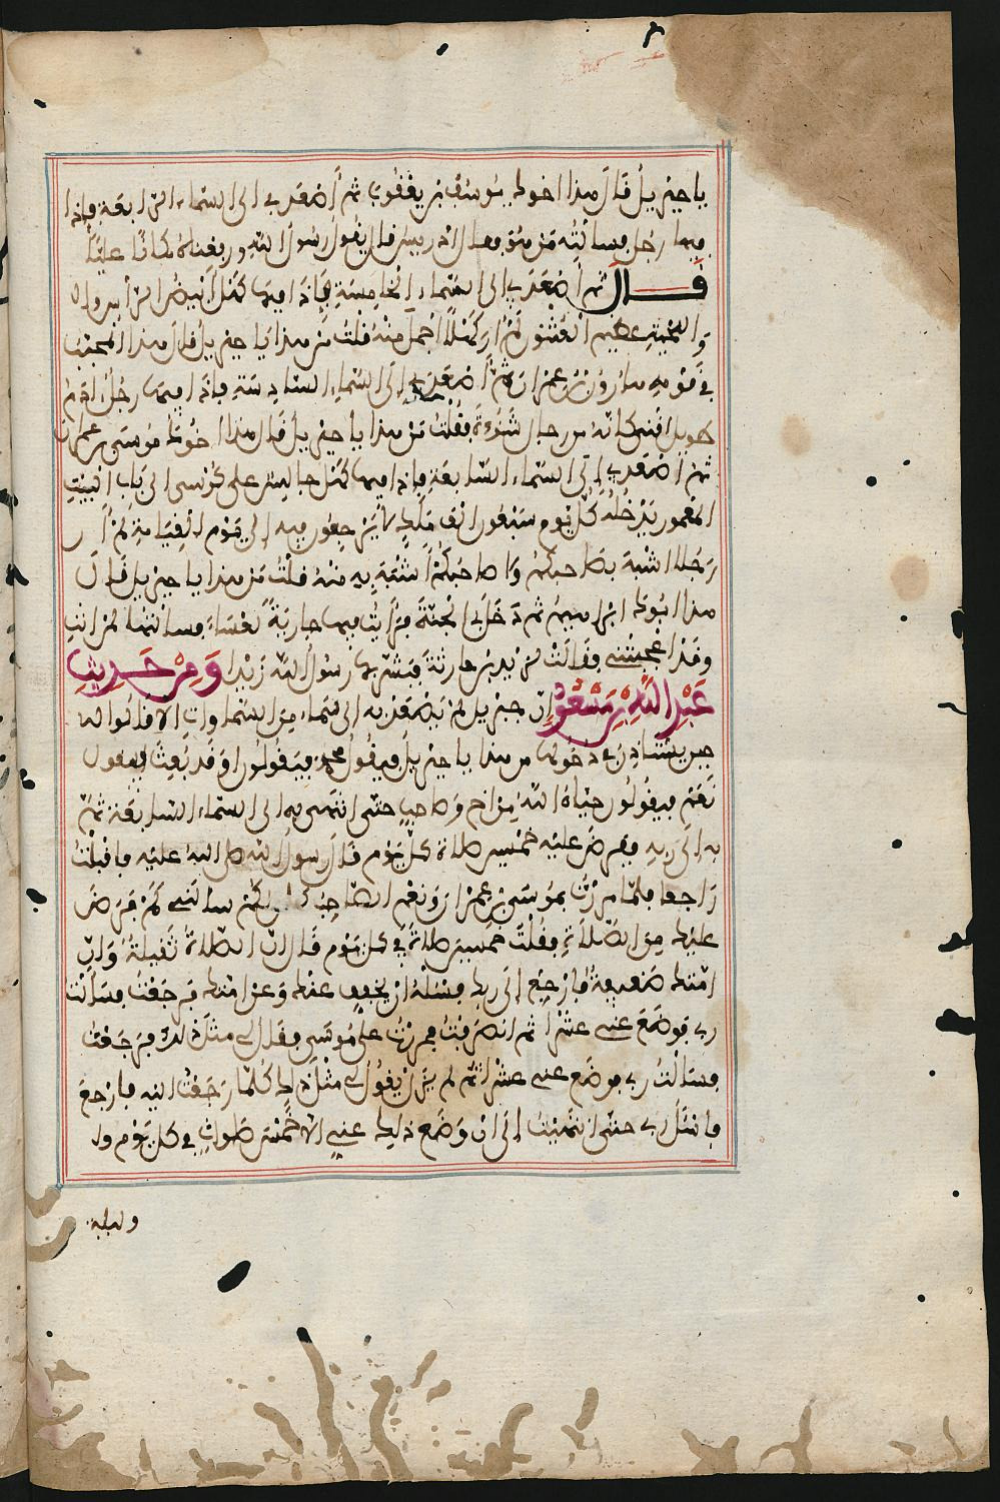 يا جبريل قال هذا اخوك يوسف بن يعقوب ثم أصعد بي الى السماء الرابعة فإذا
فيها رجل فسألته من هو فقال ادريس قال يقول رسول الله ورفعناه مكانا عليا
قال ثم أصعد بي إلى السماء الخامسة فإذا فيها كهل أبيض الرأس و
واللحية عظيم العثنون لم أر كهلا أجمل منه قلت من هذا يا جبريل قال هذا المحبب
في قومه هارون بن عمران ثم أصعد بي إلى السماء السادسة فإذا فيها رجل ادم
طويل اقنى كانه من رجال شنوءة فقلت من هذا يا جبريل قال هذا اخوك موسى بن عمران
ثم أصعد بي إلى السماء السابعة فإذا فيها كهل جالس على كرسي الى باب البيت
المعمور يدخله كل يوم سبعون الف ملك لا يرجعون فيه إلى يوم القيامة لم أر
رجلا اشبه بصاحبكم ولا صاحبكم أشبه به منه قلت من هذا يا جبريل قال
هذا ابوك ابراهيم ثم دخل بي الجنة فرأيت فيها جارية لعساء فسألتها لمن انت
وقد اعجبتني فقالت لزيد بن حارثة فبشر بها رسول الله زيدا ومن حديث
عبد الله بن مسعود إن جبريل لم يصعد به إلى سماء من السماوات الا قالوا له
حين يستأذن في دخولها من هذا يا جبريل فيقول محمد فيقولون اوقد بعث فيقول
نعم فيقولون حياه الله من اخ وصاحب حتى انتهى به الى السماء السابعة ثم
به إلى ربه ففرض عليه خمسين صلاة كل يوم قال رسول الله صلى الله عليه فاقبلت
راجعا فلما مررت بموسى بن عمران ونعم الصاحب كان لكم سالني كم فرض
عليك من الصلاة فقلت خمسين صلاة في كل يوم قال ان الصلاة ثقيلة وان
امتك ضعيفة فارجع إلى ربك فسله ان يخفف عنك وعن امتك فرجعت فسألت
ربي فوضع عني عشرا ثم انصرفت فمررت على موسى فقال لي مثل ذلك فرجعت
فسألت ربي فوضع عني عشرا ثم لم يزل يقول لي مثل ذلك كلما رجعت اليه فارجع
فاسئل ربي حتى انتهيت إلى ان وضع ذلك عني الا خمس صلوات في كل يوم و
وليلة